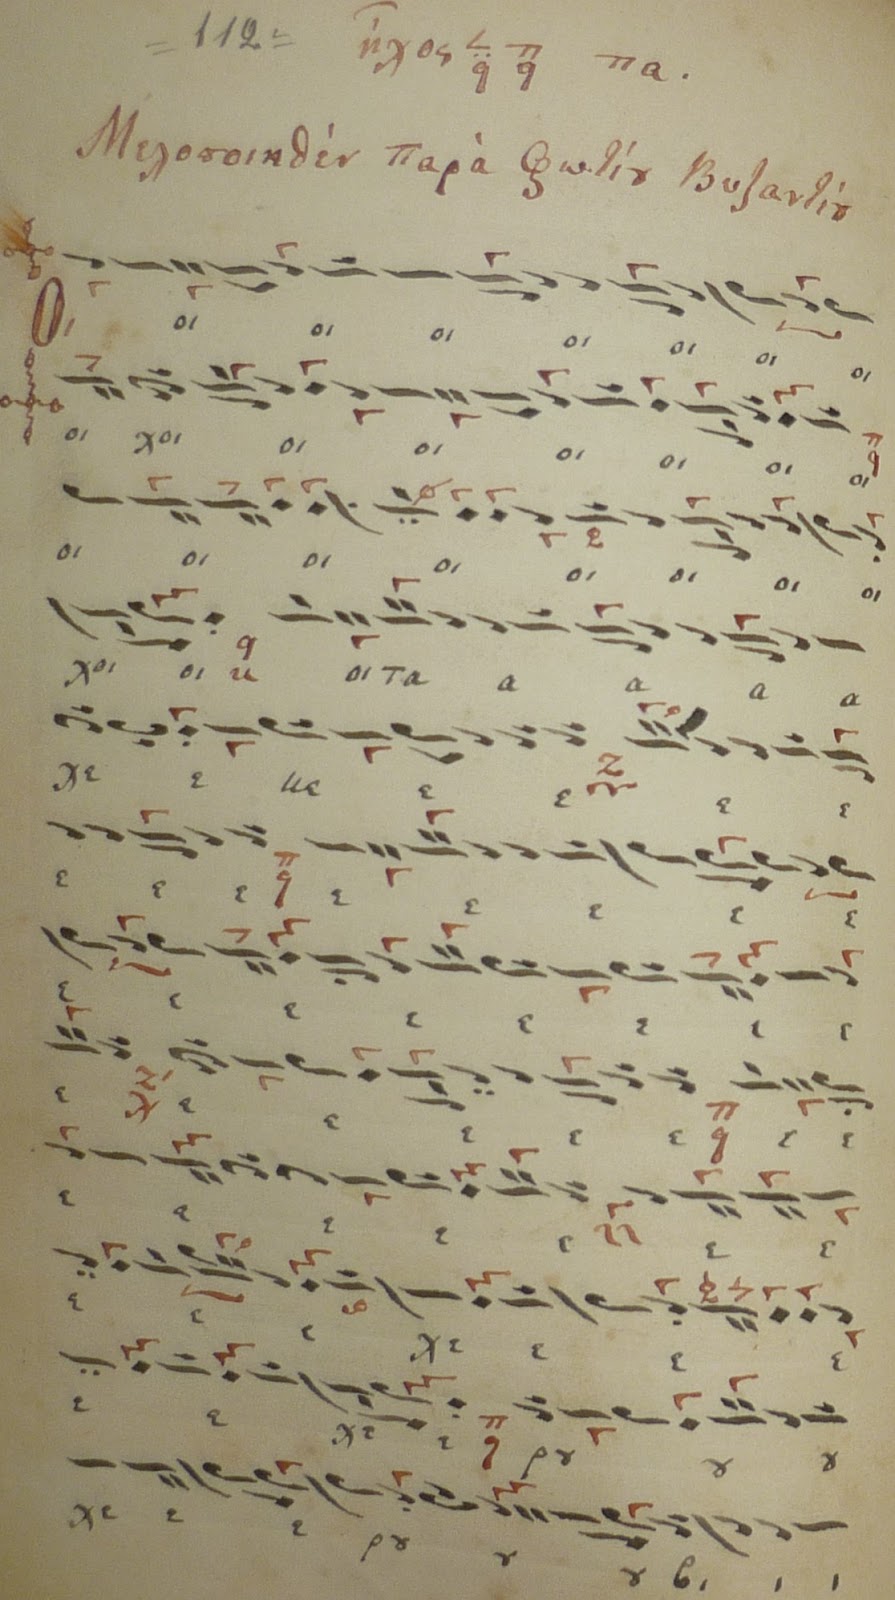 =112=
ἦχος πα.
Μελοποιηθὲν παρὰ Φωτίου Βυζαντίου
Οι οι οι οι οι οι οι οι
οι χοι οι οι οι οι οι οι
οι οι οι οι οι οι οι οι
χοι οι οι τα α α α α
χε ε ε ε ε ε
ε ε ε ε ε ε ε ε
ε ε ε ε ε ε ε ε
ε ε ε ε ε ε ε ε
ε ε ε ε ε ε ε
ε ε ε χε ε ε ε
ε ε χε ε ρου ου ου
χε ε ε ρου ου ου βι ι ι